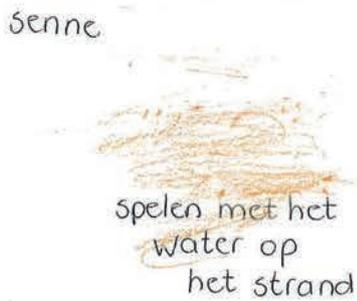 senne
spelen met het
water op
het strand